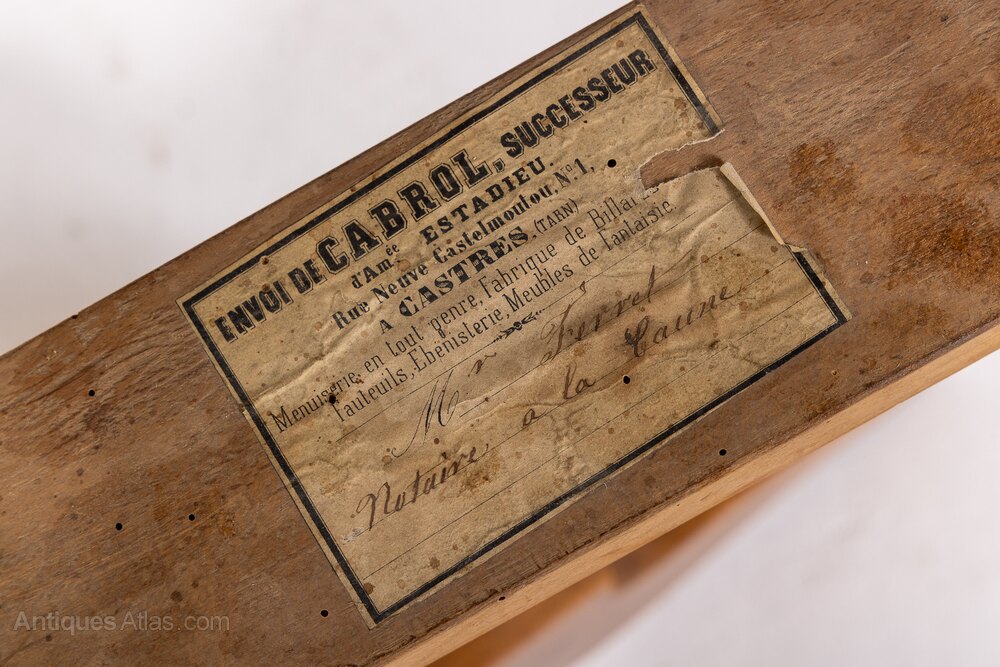 ENVOI DE CABROL, SUCCESSEUR
d'Amée ESTADIEU.
Rue Neuve Castelmoutou, N.º 1,
A CASTRES (TARN)
Menuiserie en tout genre, Fabrique de
Fauteuils, Ebenisterie, Meubles de Fantaisie.
Mr Ferret
Notaire a la Caune
AntiquesAtlas.com